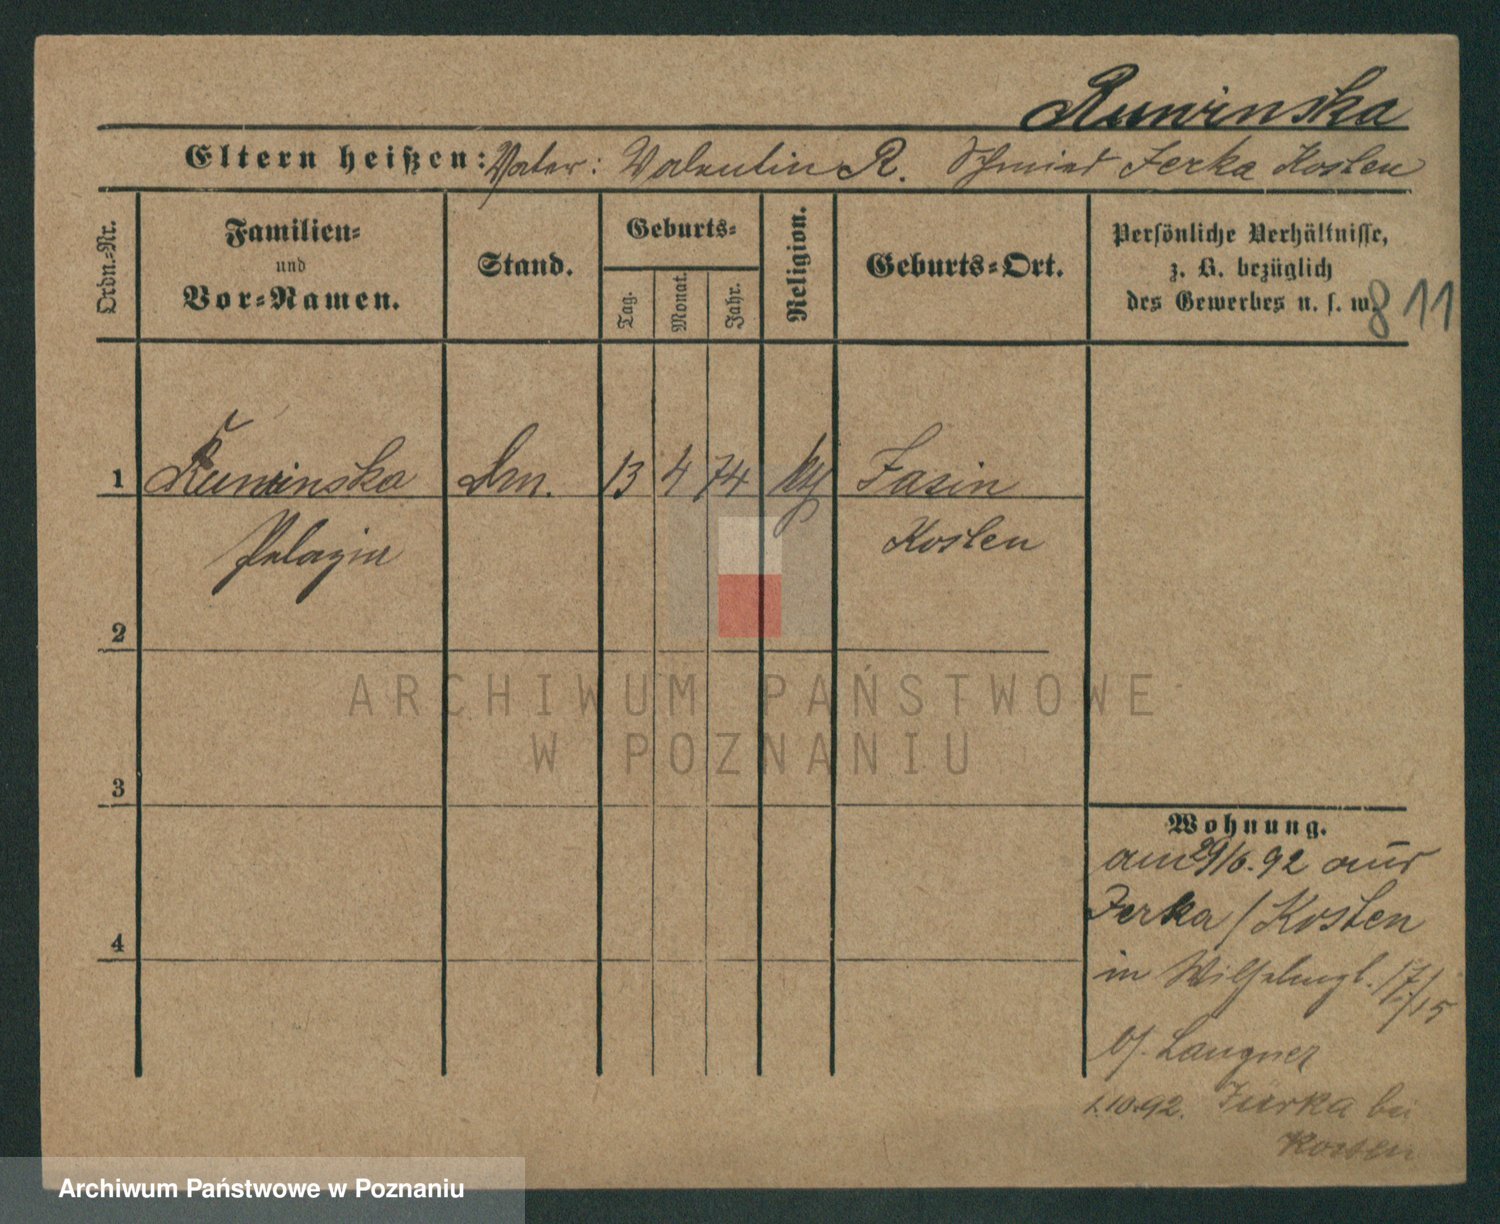 Ruminska
Eltern heißen: Vater: Valentin R. Schmied Jerka Kosten
Ordn.-Nr.
Familien-
und
Vor-Namen.
Stand.
Geburts-
Tag.
Monat.
Jahr.
Religion.
Geburts-Ort.
Persönliche Verhältnisse,
z. B. bezüglich
des Gewerbes u. s. w.
811
1 Ruminska Dm. 13 4 74 kth
Kosten
Pelagia
2
3
4
ARCHIWUM PAŃSTWOWE
W POZNANIU
Wohnung.
am 29/6.92 aus
Jerka / Kosten
in 17/
15
b/. Langner
1.10.92. Jurka bei
Kosten
Archiwum Państwowe w Poznaniu